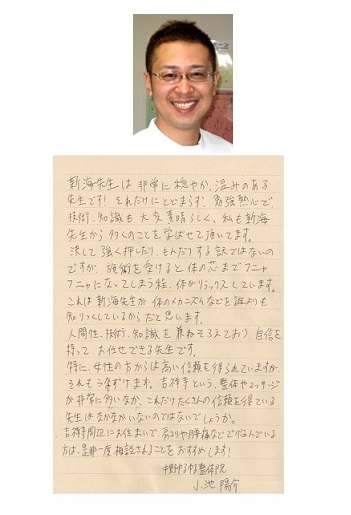 新海先生は非常に穏やか、温みのある
先生です! それだけにとどまらず、勉強熱心で
技術、知識も大変素晴らしく、私も新海
先生から多くのことを学ばせて頂いてます。
決して強く押したり、もんだりする訳ではないの
ですが、施術を受けると体の芯までフニャ
フニャになってしまう程、体がリラックスしています。
これは新海先生が体のメカニズムなどを誰よりも
知りつくしているからだと思います。
人間性、技術、知識を兼ねそろえており、自信を
持って、お任せできる先生です。
特に、女性の方からは高い信頼を得られていますが、
それもうなずけます。吉祥寺という、整体やマッサージ
が非常に多いなか、これだけたくさんの信頼を得ている
先生はなかなかいないのではないでしょうか。
吉祥寺周辺にお住まいで、肩コリや腰痛などで悩んでいる
方は、是非一度相談されることをおすすめします!
中野ゆるゆる整体院
小池 陽介